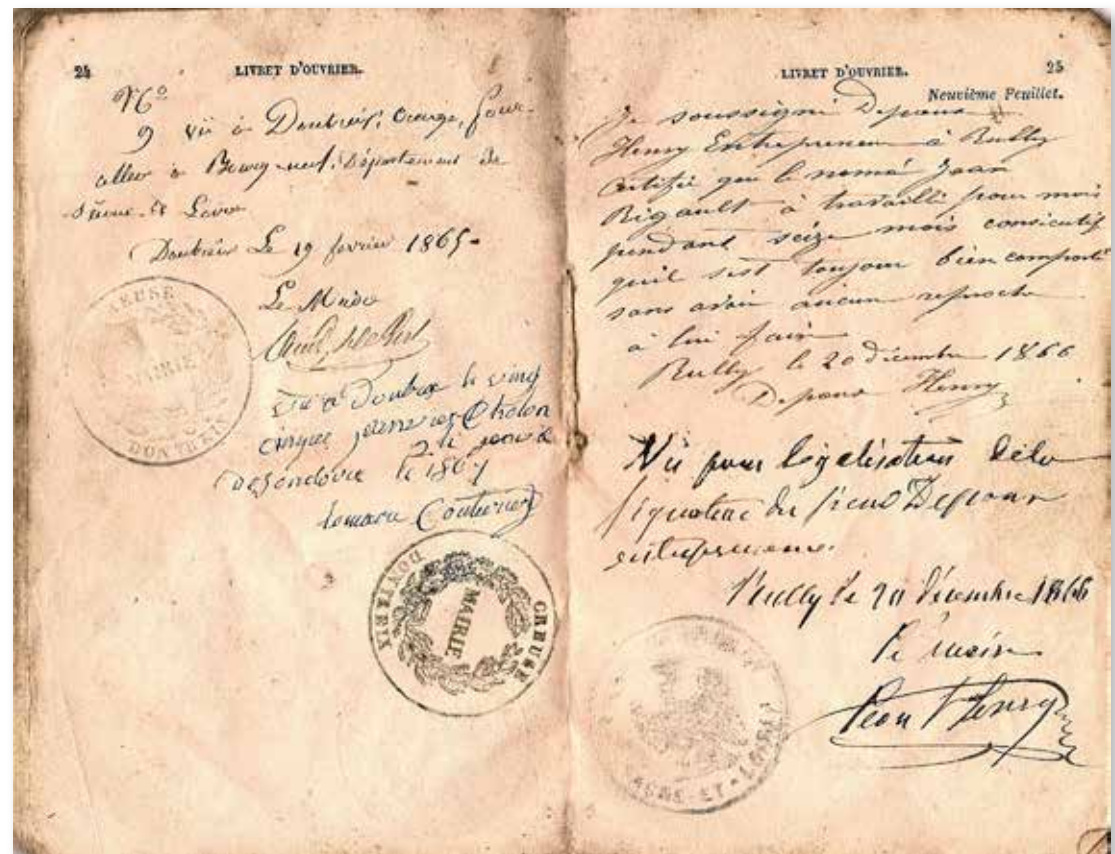 24
LIVRET D'OUVRIER.
N°
9 vu à Dontreix, Creuse, pour
aller à Bourg-neuf, Département de
Saône et Loire
Dontreix Le 19 février 1865-
Le Maire
CREUSE
MAIRIE
DONTREIX
Vu a Dontrix le vingt
cinque janvier
le 1867
lemaire Couturier
CREUSE
MAIRIE
DONTRIX
LIVRET D'OUVRIER.
25
Neuvième Feuillet.
Je soussigné Depono
Henry Entrepreneur à Rully
Certifie que le nomé Jean
Rigault à travaillé pour mois
pendant seize mois consicutif
quil sest toujour bien comporté
sans avoir aucun reproche
a lui faire
Rully le 20 décembre 1866
Depono Henry
Vu pour légalisation dela
signature du sieur
entrepreneur.
Rully le 20 décembre 1866
le maire
SAÔNE-ET-LOIRE